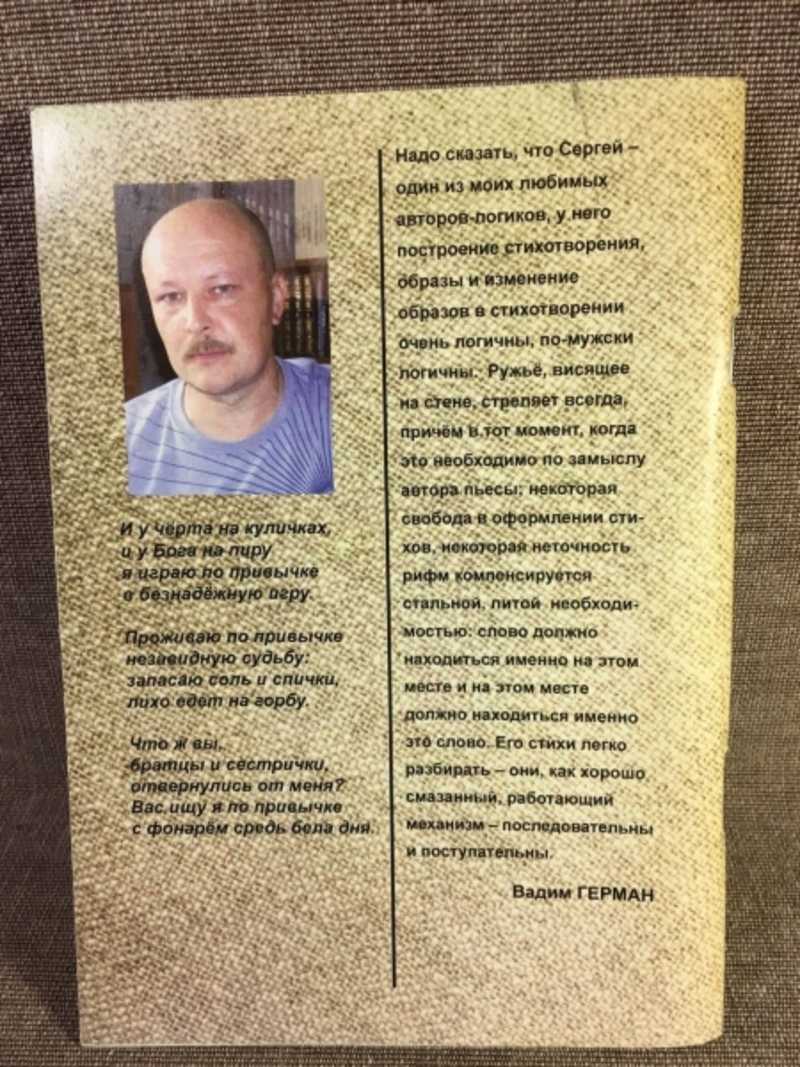 И у чёрта на куличках,
и у Бога на пиру
я играю по привычке
в безнадёжную игру.
Проживаю по привычке
незавидную судьбу:
запасаю соль и спички,
лихо едет на горбу.
Что ж вы,
братцы и сестрички,
отвернулись от меня?
Вас ищу я по привычке
с фонарём средь бела дня.
Надо сказать, что Сергей –
один из моих любимых
авторов-логиков, у него
построение стихотворения,
образы и изменение
образов в стихотворении
очень логичны, по-мужски
логичны. Ружьё, висящее
на стене, стреляет всегда,
причём в тот момент, когда
это необходимо по замыслу
автора пьесы; некоторая
свобода в оформлении сти-
хов, некоторая неточность
рифм компенсируется
стальной, литой необходи-
мостью: слово должно
находиться именно на этом
месте и на этом месте
должно находиться именно
это слово. Его стихи легко
разбирать – они, как хорошо
смазанный, работающий
механизм – последовательны
и поступательны.
Вадим ГЕРМАН